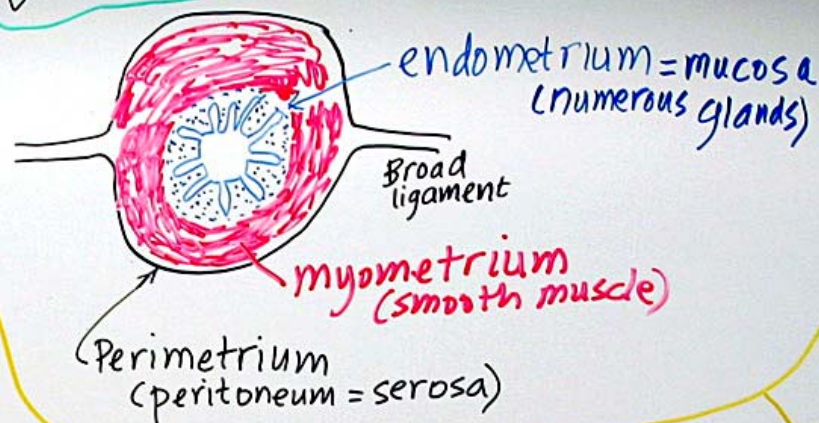 endometrium = mucosa
(numerous glands)
Broad
ligament
myometrium
(smooth muscle)
Perimetrium
(peritoneum = serosa)